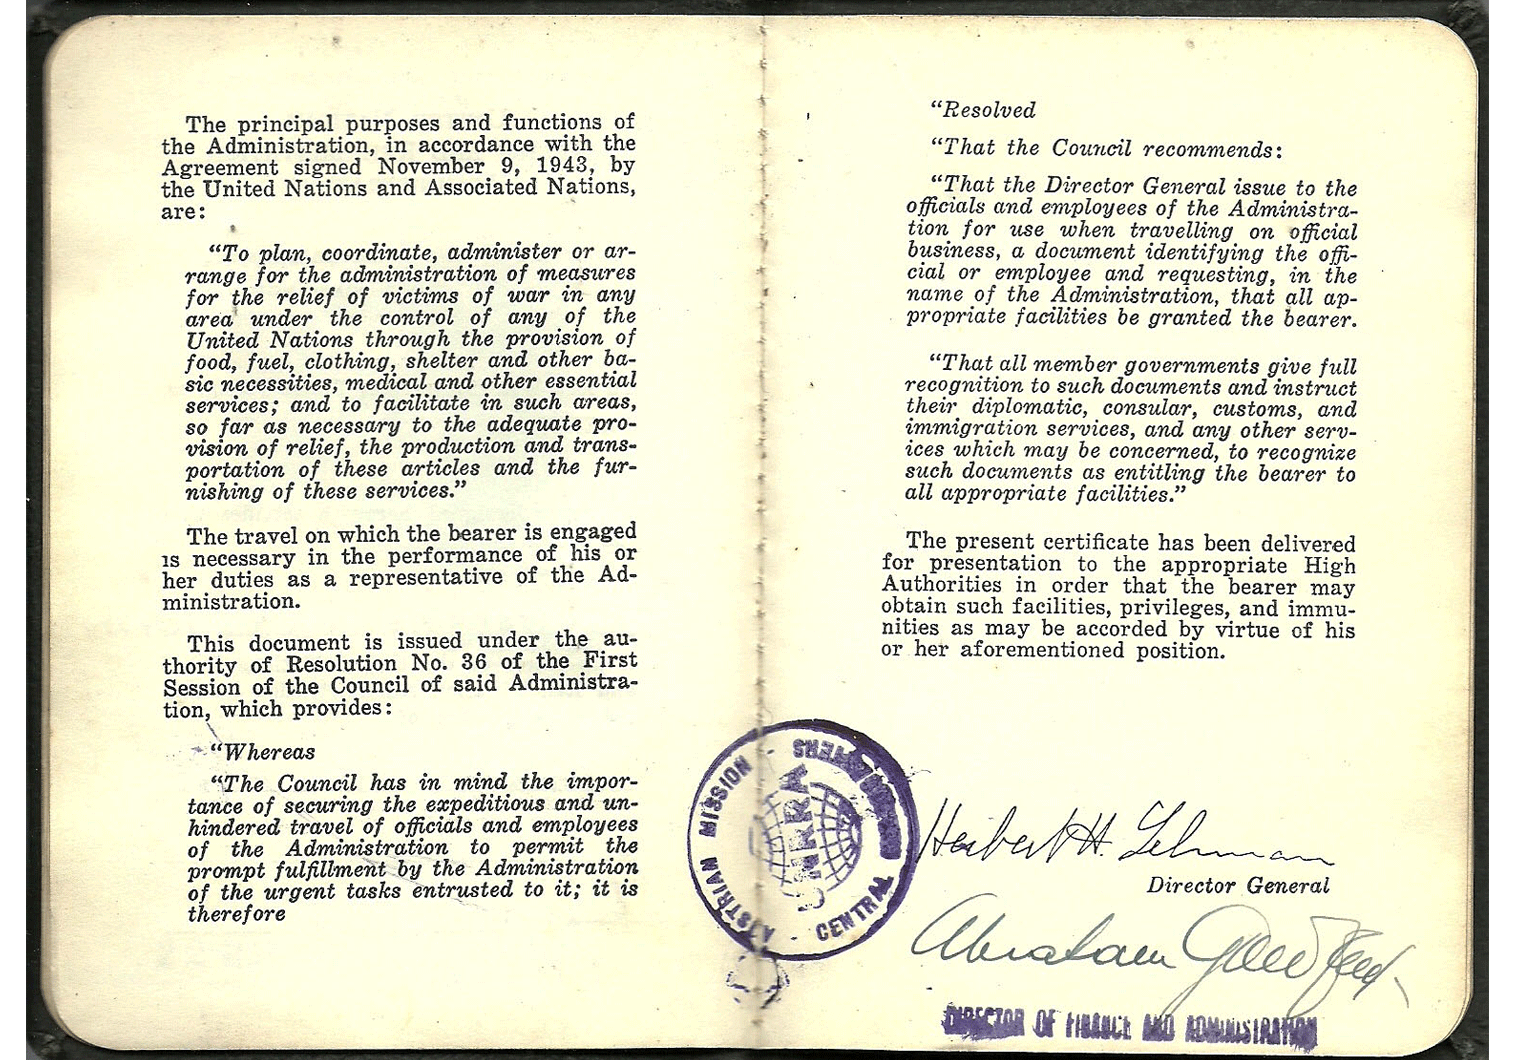 The principal purposes and functions of
the Administration, in accordance with the
Agreement signed November 9, 1943, by
the United Nations and Associated Nations,
are:
“To plan, coordinate, administer or ar-
range for the administration of measures
for the relief of victims of war in any
area under the control of any of the
United Nations through the provision of
food, fuel, clothing, shelter and other ba-
sic necessities, medical and other essential
services; and to facilitate in such areas,
so far as necessary to the adequate pro-
vision of relief, the production and trans-
portation of these articles and the fur-
nishing of these services.”
The travel on which the bearer is engaged
is necessary in the performance of his or
her duties as a representative of the Ad-
ministration.
This document is issued under the au-
thority of Resolution No. 36 of the First
Session of the Council of said Administra-
tion, which provides:
“Whereas
“The Council has in mind the impor-
tance of securing the expeditious and un-
hindered travel of officials and employees
of the Administration to permit the
prompt fulfillment by the Administration
of the urgent tasks entrusted to it; it is
therefore
“Resolved
“That the Council recommends:
“That the Director General issue to the
officials and employees of the Administra-
tion for use when travelling on official
business, a document identifying the offi-
cial or employee and requesting, in the
name of the Administration, that all ap-
propriate facilities be granted the bearer.
“That all member governments give full
recognition to such documents and instruct
their diplomatic, consular, customs, and
immigration services, and any other serv-
ices which may be concerned, to recognize
such documents as entitling the bearer to
all appropriate facilities.”
The present certificate has been delivered
for presentation to the appropriate High
Authorities in order that the bearer may
obtain such facilities, privileges, and immu-
nities as may be accorded by virtue of his
or her aforementioned position.
AUSTRIAN MISSION
CENTRAL
UNRRA
Herbert H. Lehman
Director General
Abraham
DIRECTOR OF FINANCE AND ADMINISTRATION